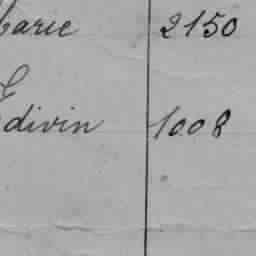 Marie 2150
E
divin 1008